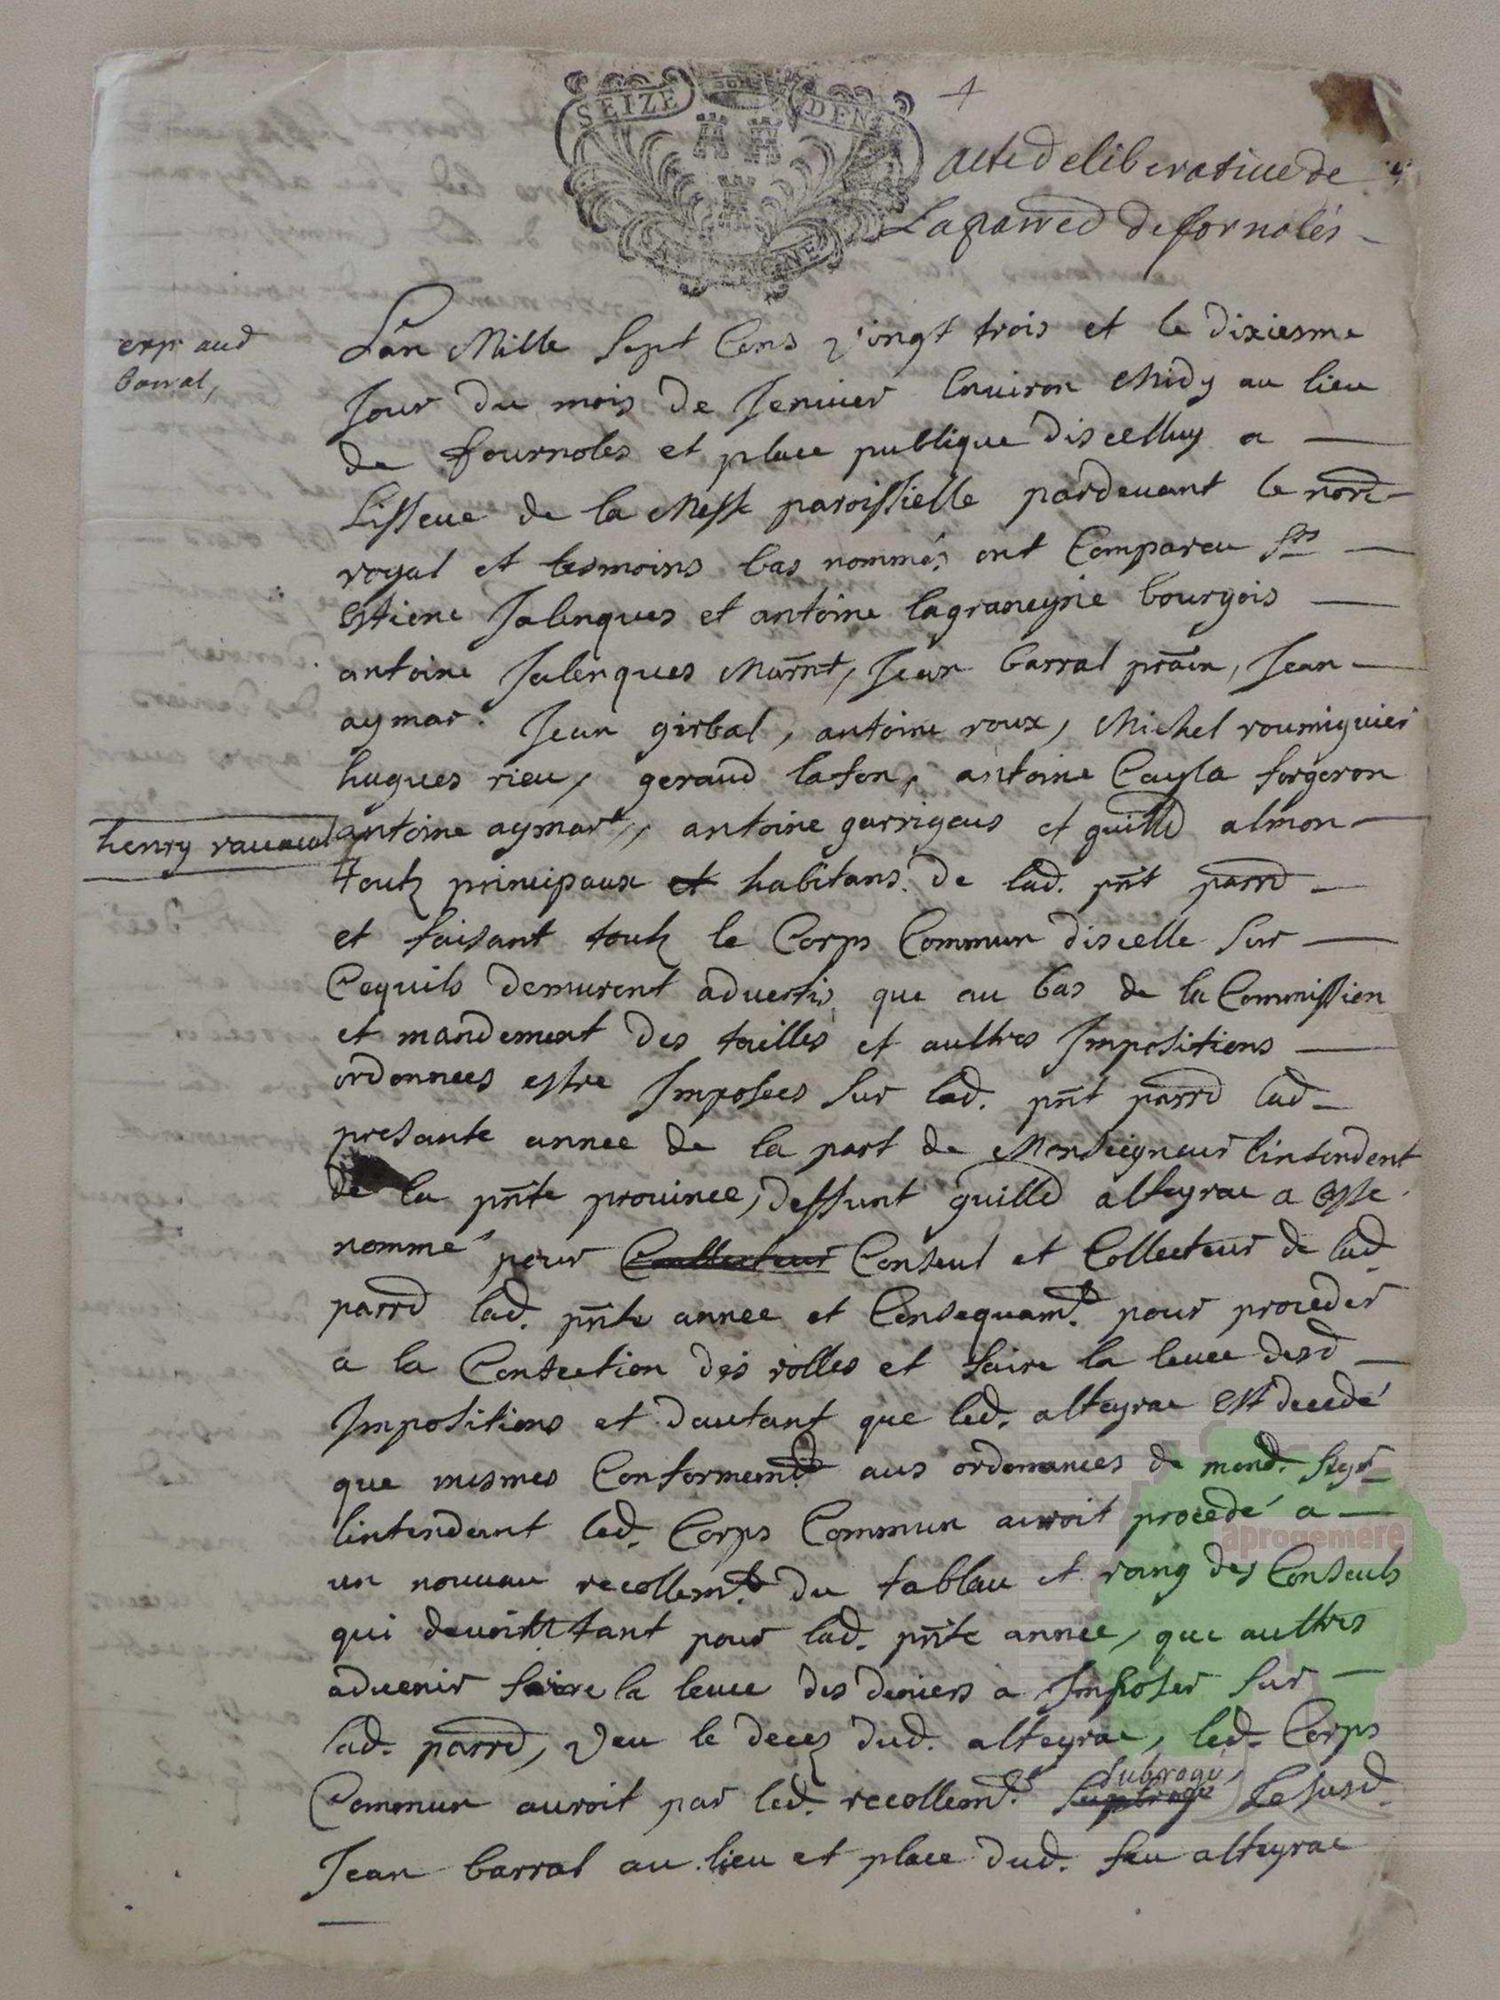 SEIZE DEN
acte deliberative de
La parred de fornolés
expr aud
barral,
Lan Mille Sept Cens vingt trois et le dixiesme
Jour du mois de Jenvier Environ Midy au lieu
de fournoles et place publique discelluy a
Lisseue de la Messe paroissielle pardevant le nore
royal et tesmoins bas nommés ont Compareu Srs
Estiene Jalenques et antoine lagraneyrie bourgois
antoine Jalenques Marnt, Jean barral prain, Jean
aymar. Jean girbal, antoine roux, Michel roumiguier
hugues rieu, geraud lafon, antoine Cayla forgeron
henry ravaval
antoine aymart,, antoine garrigeus et guilld almon
touts principaux et habitans de lad. pnt parrd
et faisant touts le Corps Commun discelle Sur
Cequils demurent advertis que au bas de la Commission
et mandement des tailles et aultres Impositions
ordonnees estre Imposees Sur lad. pnt parrd lad
presante annee de la part de Monseigneur lintendent
de la pnte province, deffunt guilld alteyrac a Este
nommé pour Collecteur Conseul et Collecteur de lad.
parrd lad. pnte annee et Consequamt. pour proceder
a la Confection des rolles et faire la levee desd
Impositions et dautant que led. alteyrac Est decedé
que mesmes Conformemt. aus ordonnances de mond. Segr
lintendant led. Corps Commun auroit procedé a
un nouvau recollemt. du tablau et rang des Conseuls
qui devoint tant pour lad. pnte annee, que aultres
advenir faire la levee des deniers a Imposer Sur
lad. parrd, veu le decez dud. alteyrac, led. Corps
subrogé,
Commun auroit par led. recollemt. Le susd.
Jean barral au lieu et place dud. feu alteyrac
aprogemere